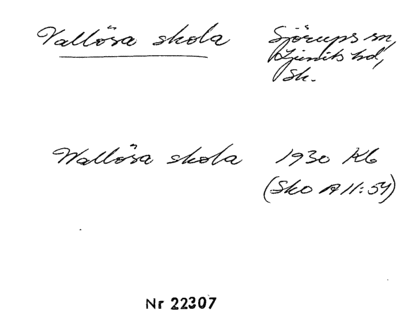 Vallösa skola Sjörups sn,
Ljunits hd,
Sk.
Wallösa skola 1930 Kb
(Sko A 11:54)
Nr 22307